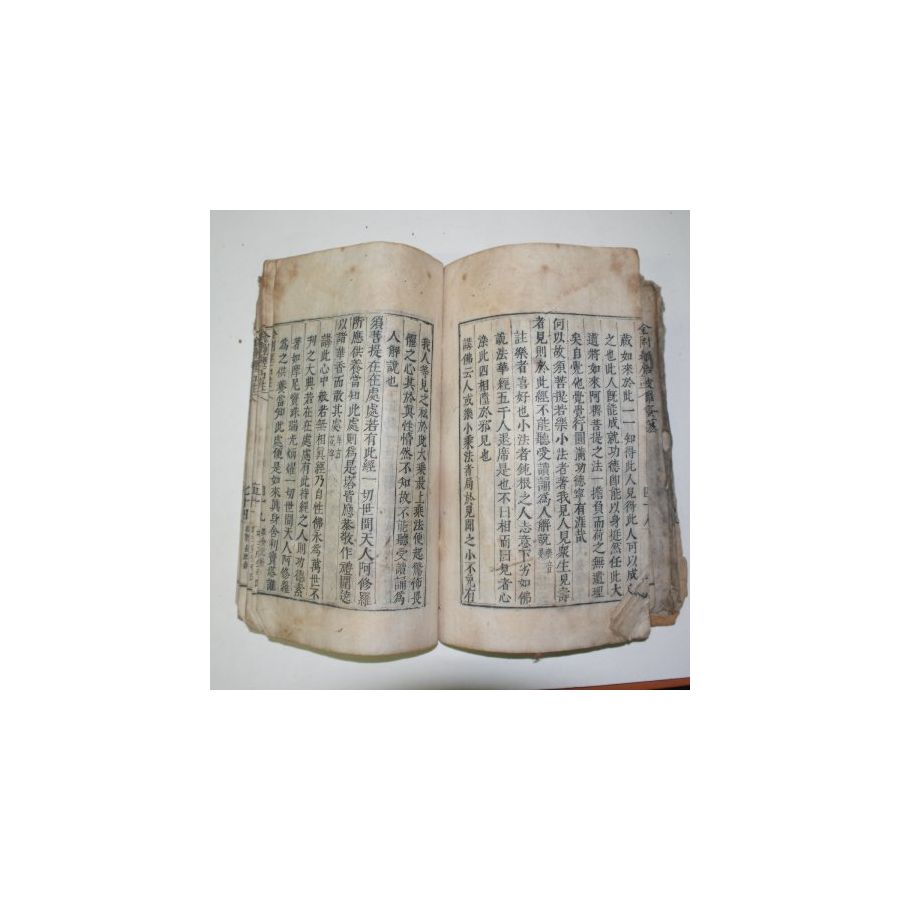 蔵如來於此一一知得此人見得此人可以成
之也此人既能成就功德卽能以身挺然任此大
道將如來阿耨菩提之法一擔負而荷之無遺理
矣自覺他覺覺行圓滿功德寧有涯哉
何以故須菩提若樂小法者著我見人見衆生見壽
者見則於此經不能聽受讀誦爲人解說
註樂者喜好也小法者鈍根之人志意下劣如佛
說法華經五千人退席是也不曰相而曰見者心
染此四相墮於邪見也
講佛云人或樂小乘法者局於見聞之小不免有
我人等見之私於此大乘最上乘法便起驚怖畏
懼之心其於眞性懵然不知故不能聽受讀誦爲
人解說也
須菩提在在處處若有此經一切世間天人阿修羅
所應供養當知此處則爲是塔皆應恭敬作禮圍遶
以諸華香而散其處
講此心中般若無相眞經乃自性佛永爲萬世不
刋之大典若在在處處有此持經之人則功德素
著如摩尼寶珠瑞光炳耀一切世間天人阿修羅
爲之供養當知此處便是如來眞身舍利寶塔